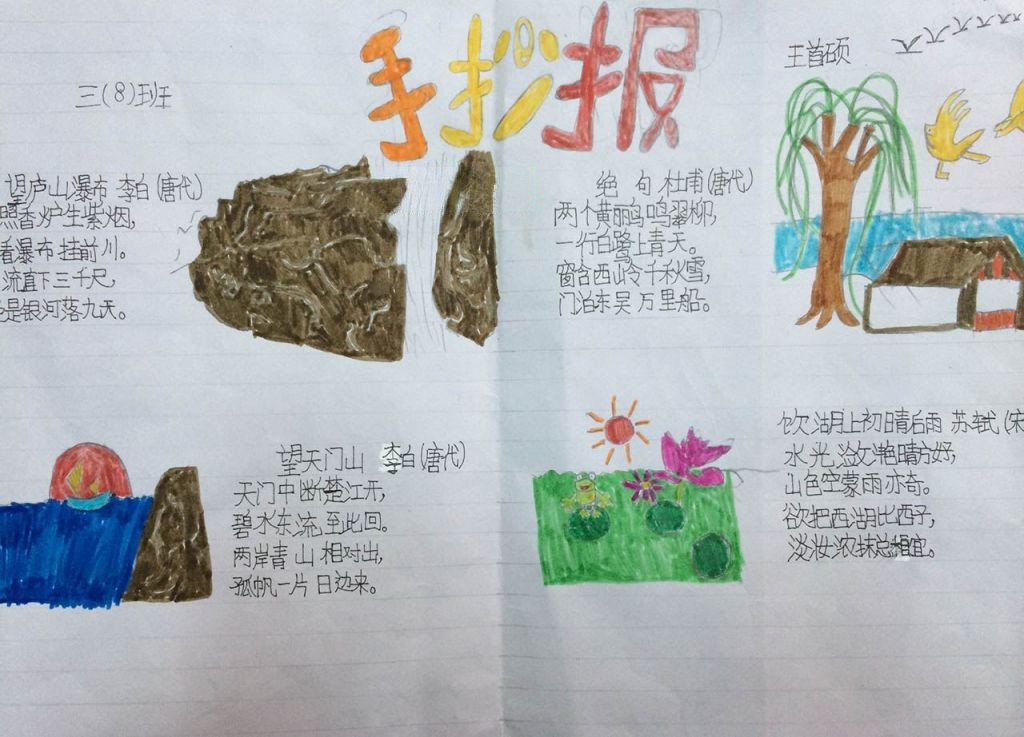 手抄报
三(8)班
王首硕
望庐山瀑布 李白(唐代)
照香炉生紫烟,
看瀑布挂前川。
流直下三千尺,
是银河落九天。
绝句 杜甫(唐代)
两个黄鹂鸣翠柳,
一行白鹭上青天。
窗含西岭千秋雪,
门泊东吴万里船。
望天门山 李白(唐代)
天门中断楚江开,
碧水东流至此回。
两岸青山相对出,
孤帆一片日边来。
饮湖上初晴后雨 苏轼(宋
水光潋滟晴方好,
山色空蒙雨亦奇。
欲把西湖比西子,
淡妆浓抹总相宜。